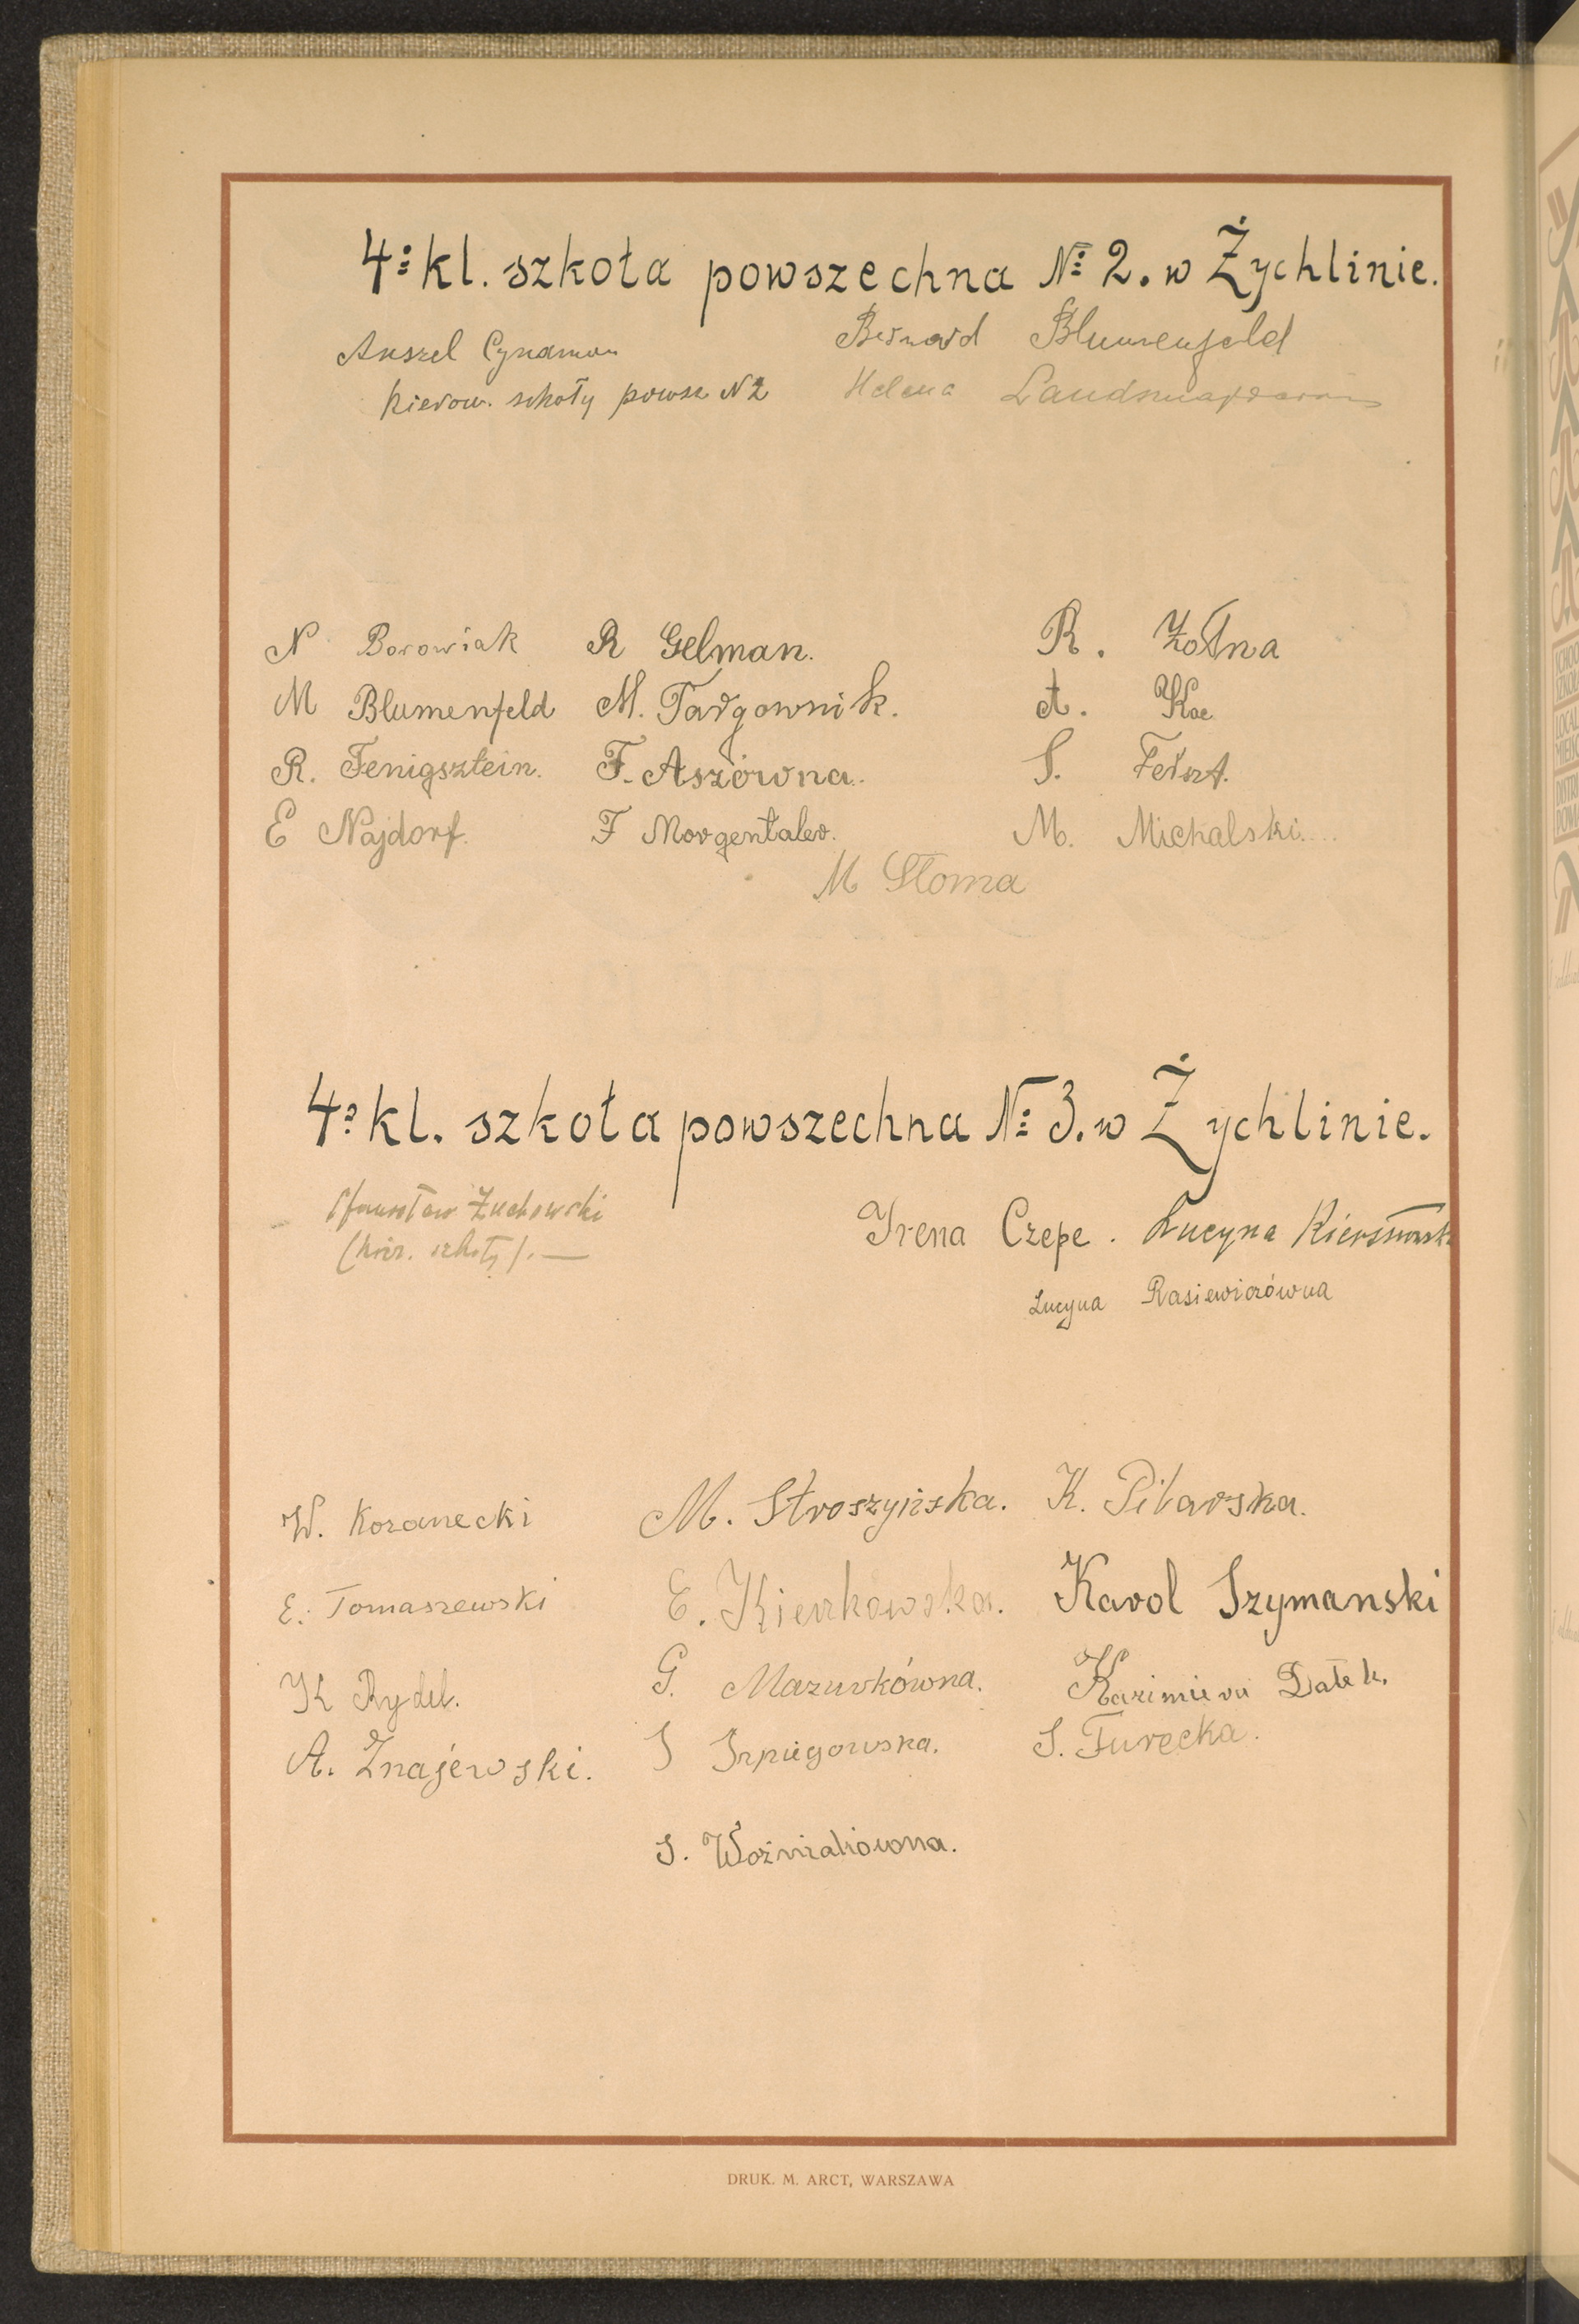 4: kl. szkoła powszechna №: 2. w Żychlinie.
Anszel Cynamon
Kierow. szkoły powsz N 2
Bernard Blumenfeld
Helena
N Borowiak R Gelman. R. Żołna
M Blumenfeld M. Targownik. A. Koc
R. Fenigsztein. F. Aszówna. S. Ferszt.
E Najdorf. F Morgentaler. M. Michalski...
M Słoma
4: kl. szkoła powszechna №: 3. w Żychlinie.
Stanisław Żuchowski
(kier. szkoły). —
Irena Czepe. Lucyna
Lucyna Rasiewiczówna
W. Koranecki M. Stroszyńska. K. Pilarska.
E. Tomaszewski E. Kierkowska. Karol Szymanski
K Rydel. G. Mazurkówna. Kazimiera Dałek.
A. Znajewski. S Szpiegowska. S. Turecka.
S. Woźniakówna.
DRUK. M. ARCT, WARSZAWA